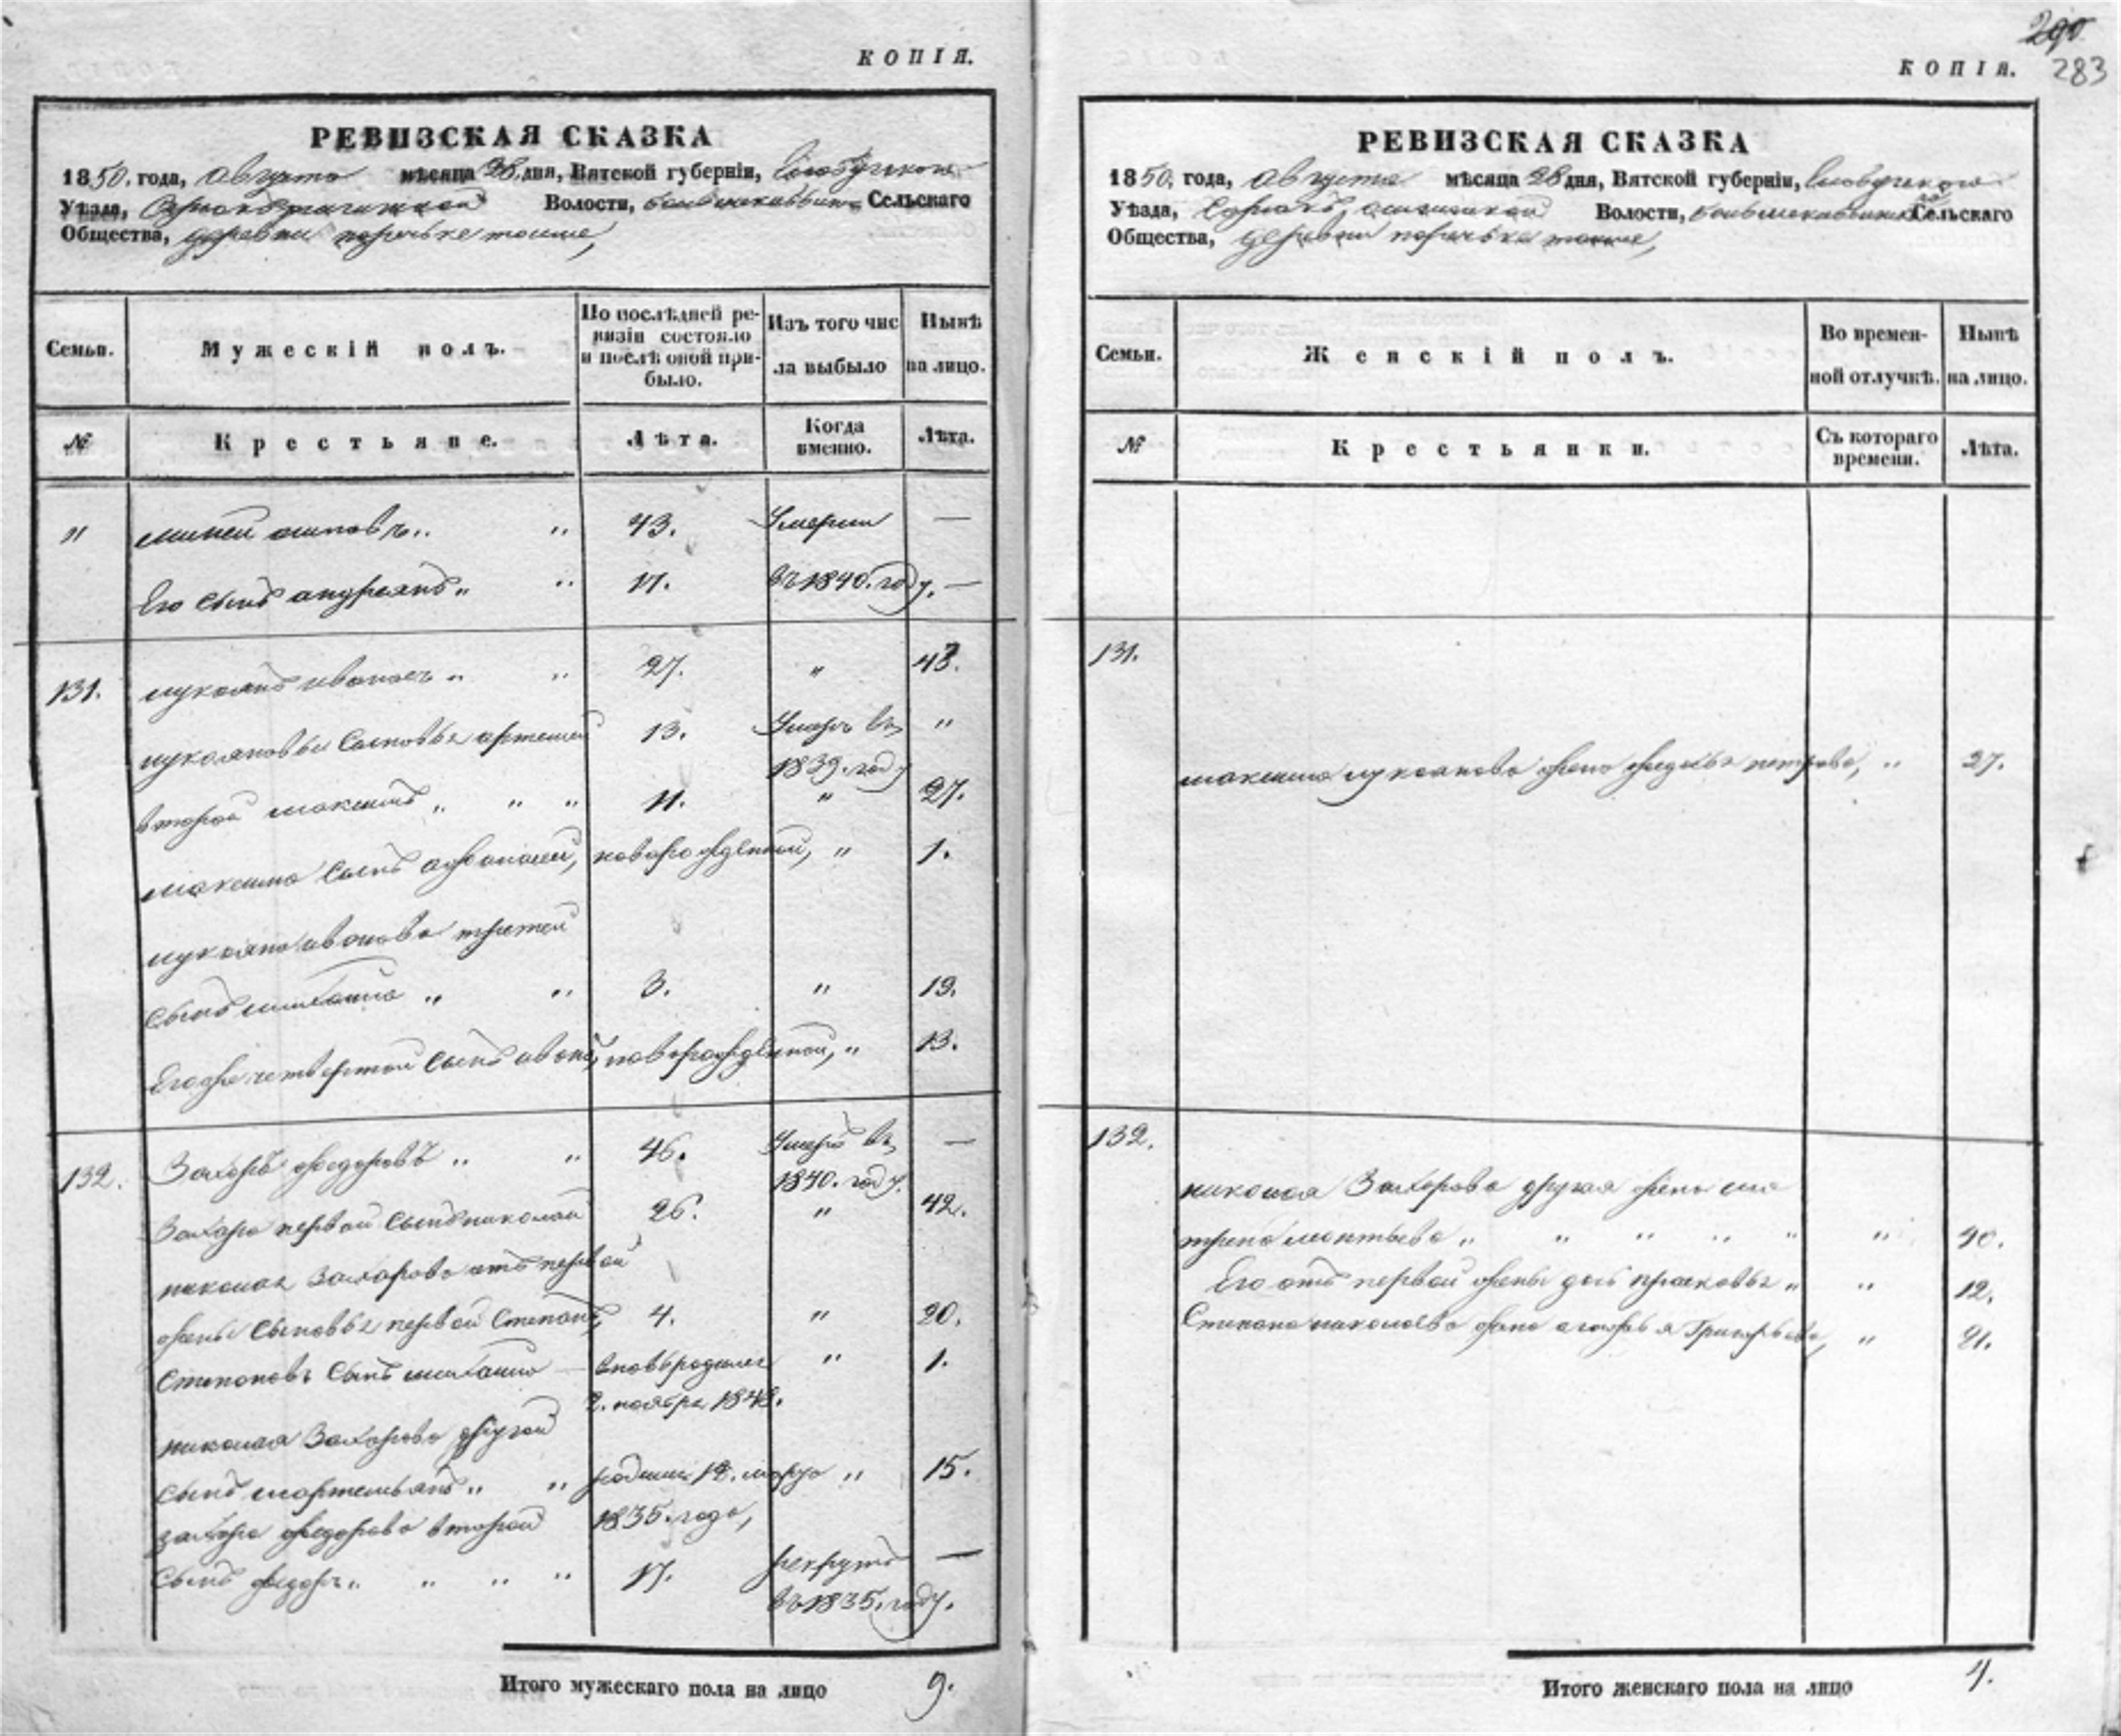 КОПІЯ.
РЕВИЗСКАЯ СКАЗКА
1850. года, августа мѣсяца 28 дня, Вятской губерніи, Слободскаго
Уѣзда, Волости, Сельскаго
Общества, деревни
Семьи.
Мужескій полъ.
По послѣдней ре-
визіи состояло
и послѣ оной при-
было.
Изъ того чис
ла выбыло
Нынѣ
на лицо.
№
Крестьяне.
Лѣта.
Когда
именно.
Лѣта.
" миней осиповъ.. " 43. Умерли —
Его сынъ андреянъ " " 17. въ 1840. году. —
131. лукоянъ ивановъ " " 27. " 43.
лукояновы сыновья артемей 13. Умеръ въ "
1839. году
второй максимъ " " " 11. " 27.
максима сынъ афонасей, новорожденной, " 1.
лукояна иванова третей
сынъ михаило " " 3. " 19.
Его же четвертой сынъ иванъ, новорожденной, " 13.
132. Захаръ федоровъ " " 46. Умеръ въ —
1840. году.
Захара первой сынъ николай 26. " 42.
николая Захарова отъ первой
жены сыновья первой Степанъ, 4. " 20.
Степановъ сынъ михаило — вновь родился " 1.
2. ноября 1848.
николая Захарова другой
сынъ мартемьянъ " " родился 12. марта " 15.
захара федорова второй 1835. года,
сынъ федоръ " " " " 17. рекрутъ —
въ 1835. году.
Итого мужескаго пола на лицо 9.
290
КОПІЯ. 283
РЕВИЗСКАЯ СКАЗКА
1850. года, августа мѣсяца 28 дня, Вятской губерніи, Слободскаго
Уѣзда, Волости, Сельскаго
Общества, деревни
Семьи.
Женскій полъ.
Во времен-
ной отлучкѣ.
Нынѣ
на лицо.
№
Крестьянки.
Съ котораго
времени.
Лѣта.
131.
максима лукоянова жена федосья петрова, " 27.
132.
николая Захарова другая жена ма
трена леонтьева " " " " " " 40.
Его отъ первой жены дочь прасковья " " 12.
Степана николаева жена агафья Григорьева, " 21.
Итого женскаго пола на лицо 4.